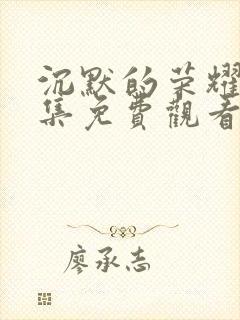 沉默的荣耀
集免費觀看
廖承志